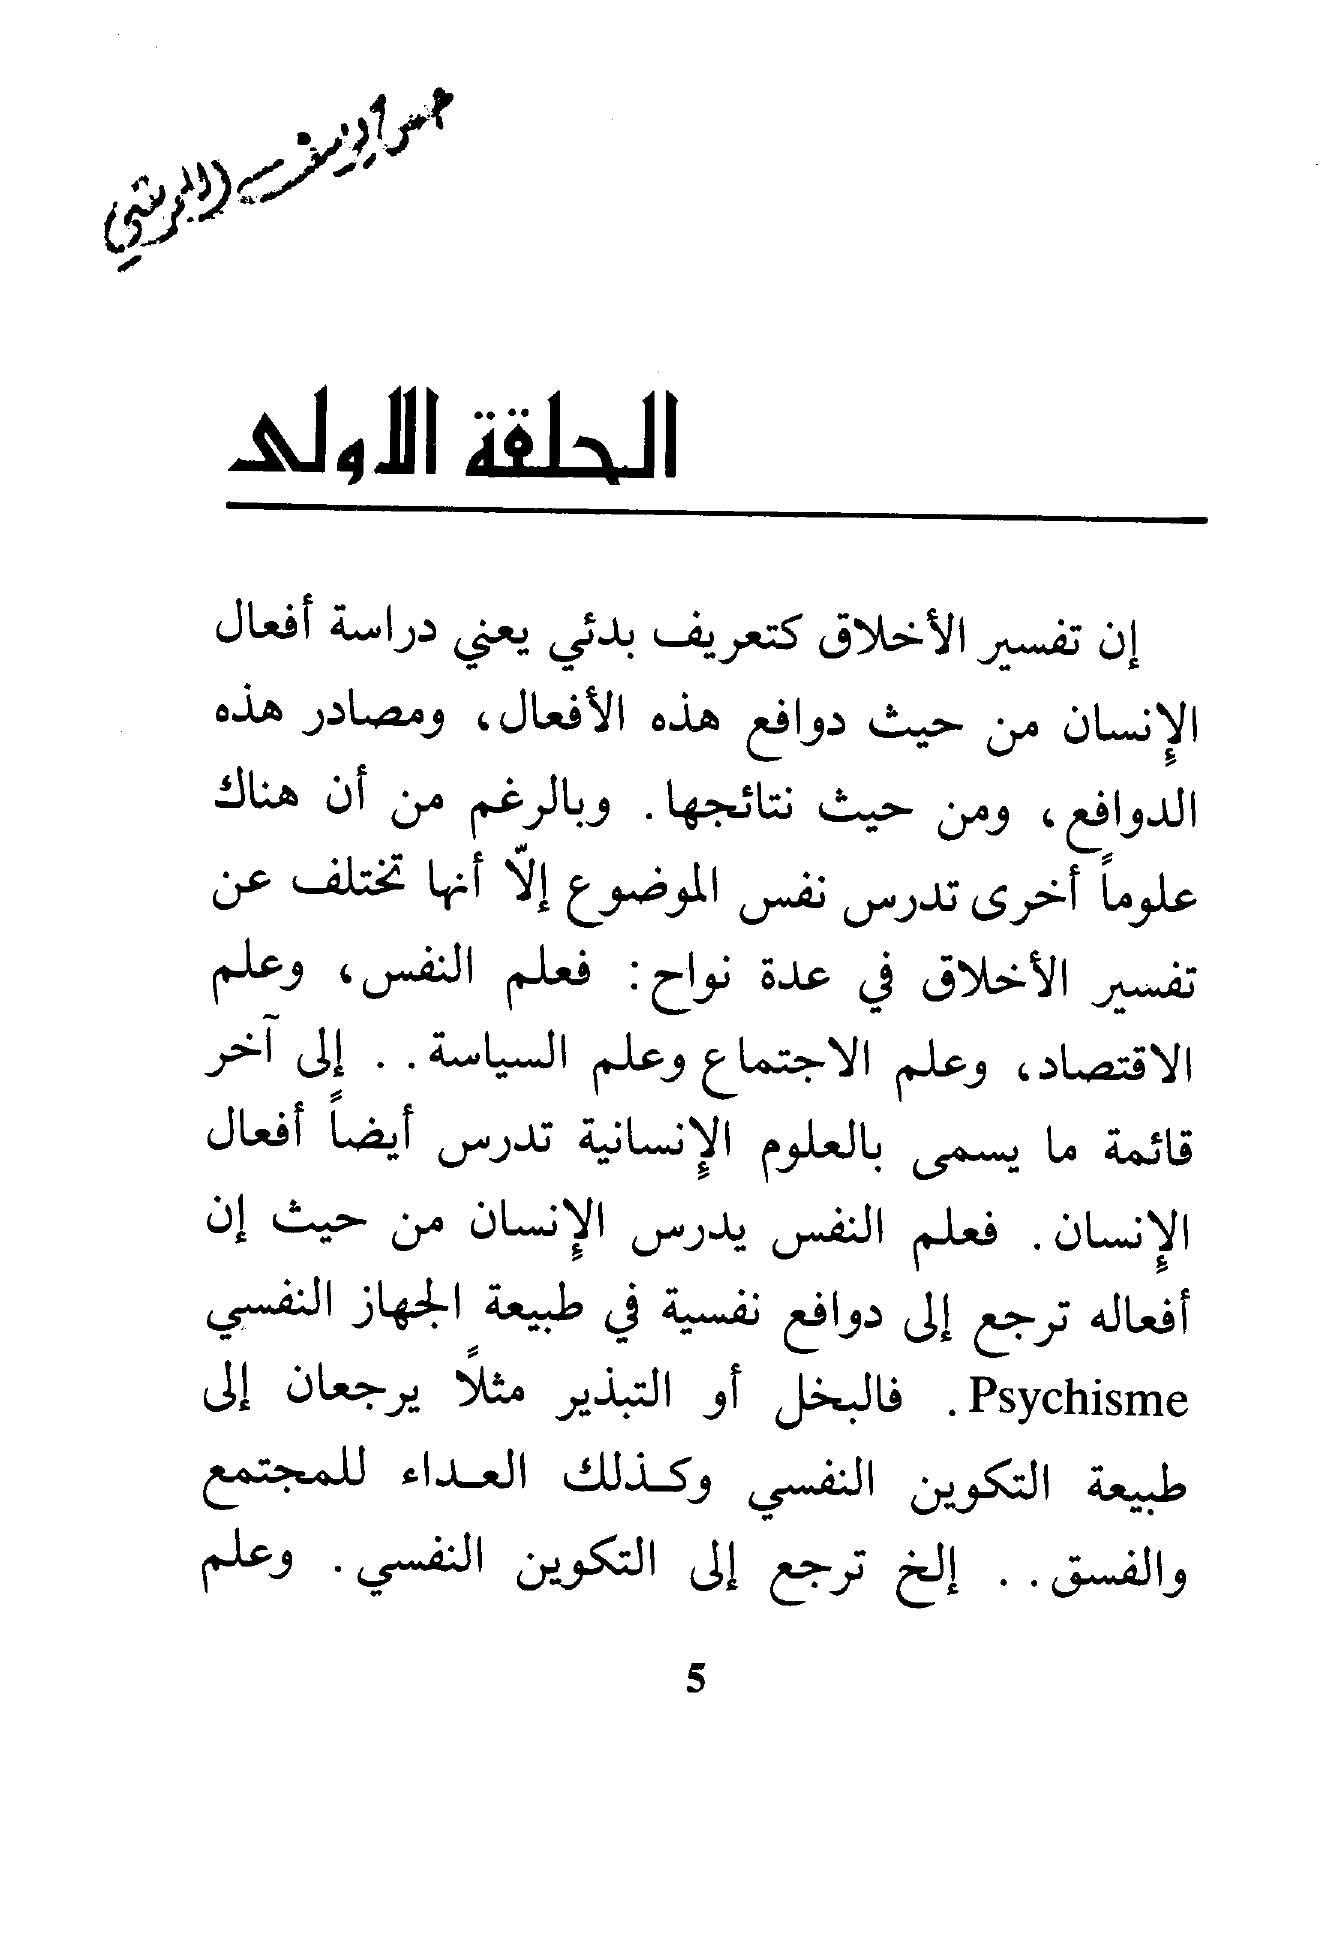 الحلقة الاولى
إن تفسير الأخلاق كتعريف بدئي يعني دراسة أفعال
الإنسان من حيث دوافع هذه الأفعال، ومصادر هذه
الدوافع، ومن حيث نتائجها. وبالرغم من أن هناك
علوماً أخرى تدرس نفس الموضوع إلاّ أنها تختلف عن
تفسير الأخلاق في عدة نواح: فعلم النفس، وعلم
الاقتصاد، وعلم الاجتماع وعلم السياسة. . إلى آخر
قائمة ما يسمى بالعلوم الإنسانية تدرس أيضاً أفعال
الإنسان. فعلم النفس يدرس الإنسان من حيث إن
أفعاله ترجع إلى دوافع نفسية في طبيعة الجهاز النفسي
Psychisme. فالبخل أو التبذير مثلاً يرجعان إلى
طبيعة التكوين النفسي وكـذلك العـداء للمجتمع
والفسق. . إلخ ترجع إلى التكوين النفسي. وعلم
5